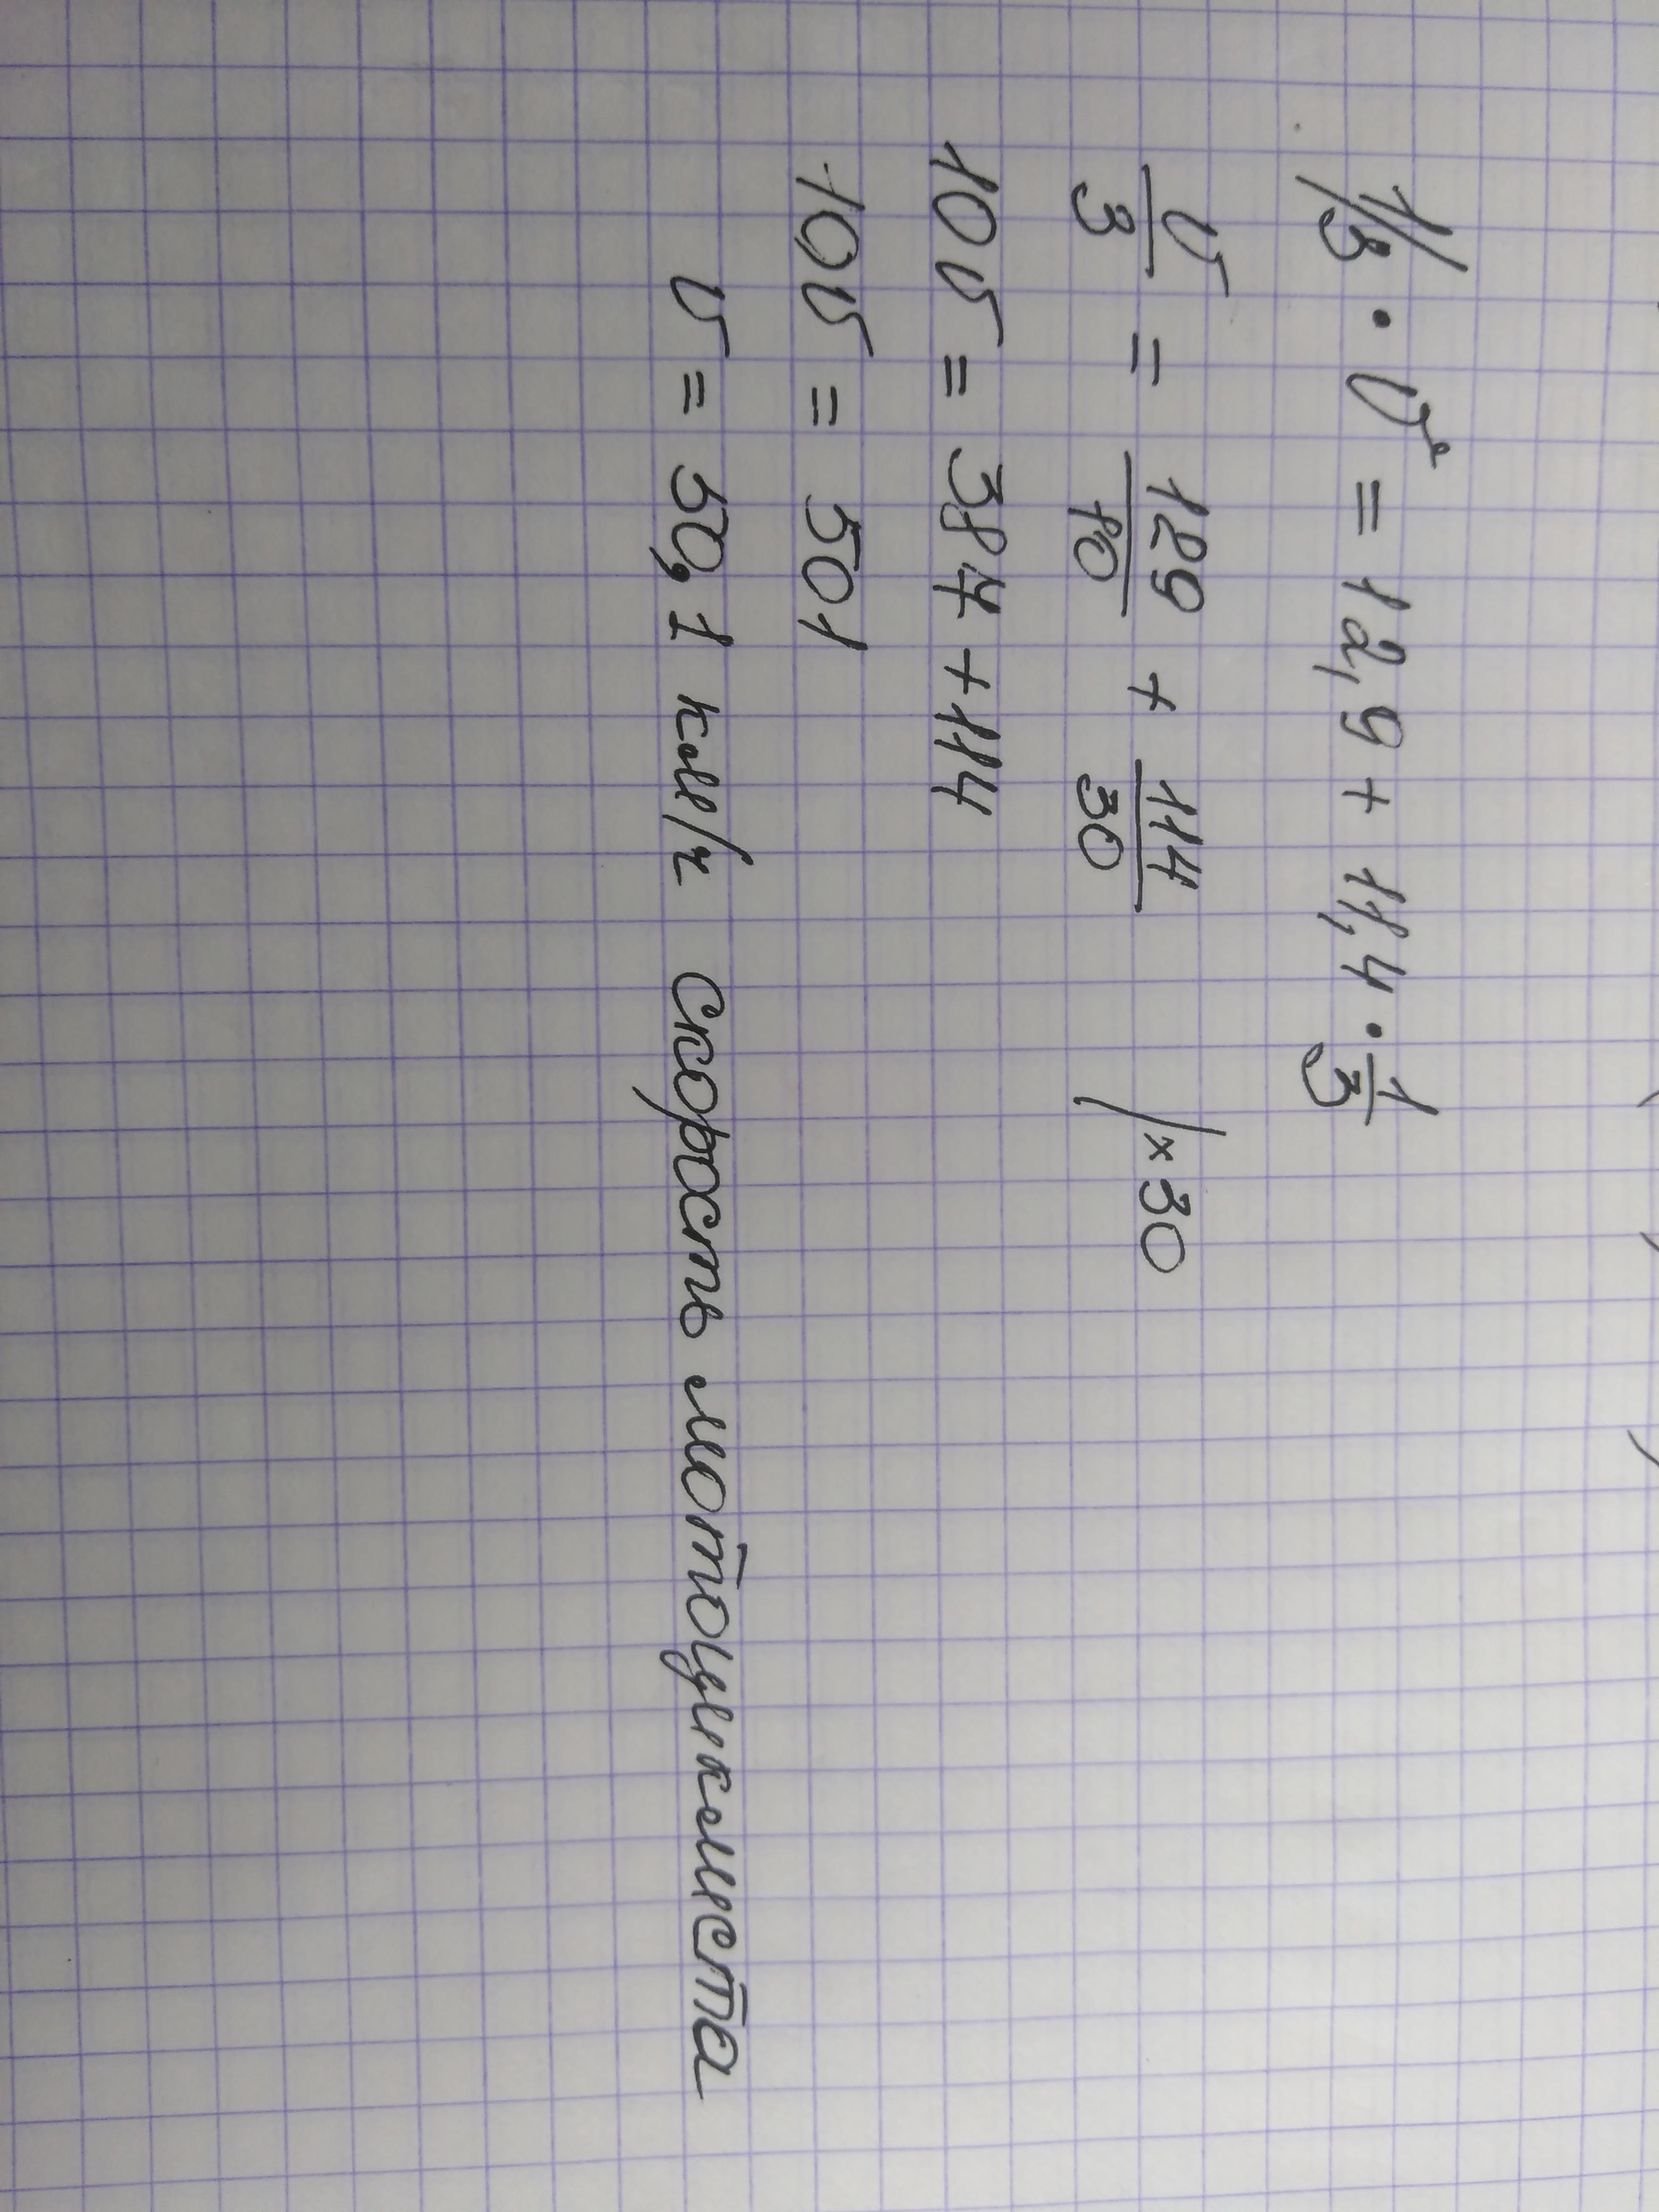 1/3 · v = 12,9 + 11,4 · 1/3
v/3 = 129/10 + 114/30 | × 30
10v = 387 + 114
10v = 501
v = 50,1 км/ч скорость мотоциклиста